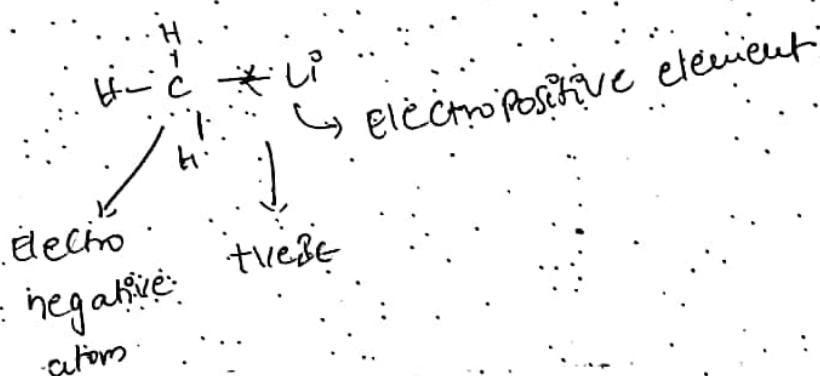 H
H-C-Li
H
Electropositive element
Electro
negative
atom
+veBE